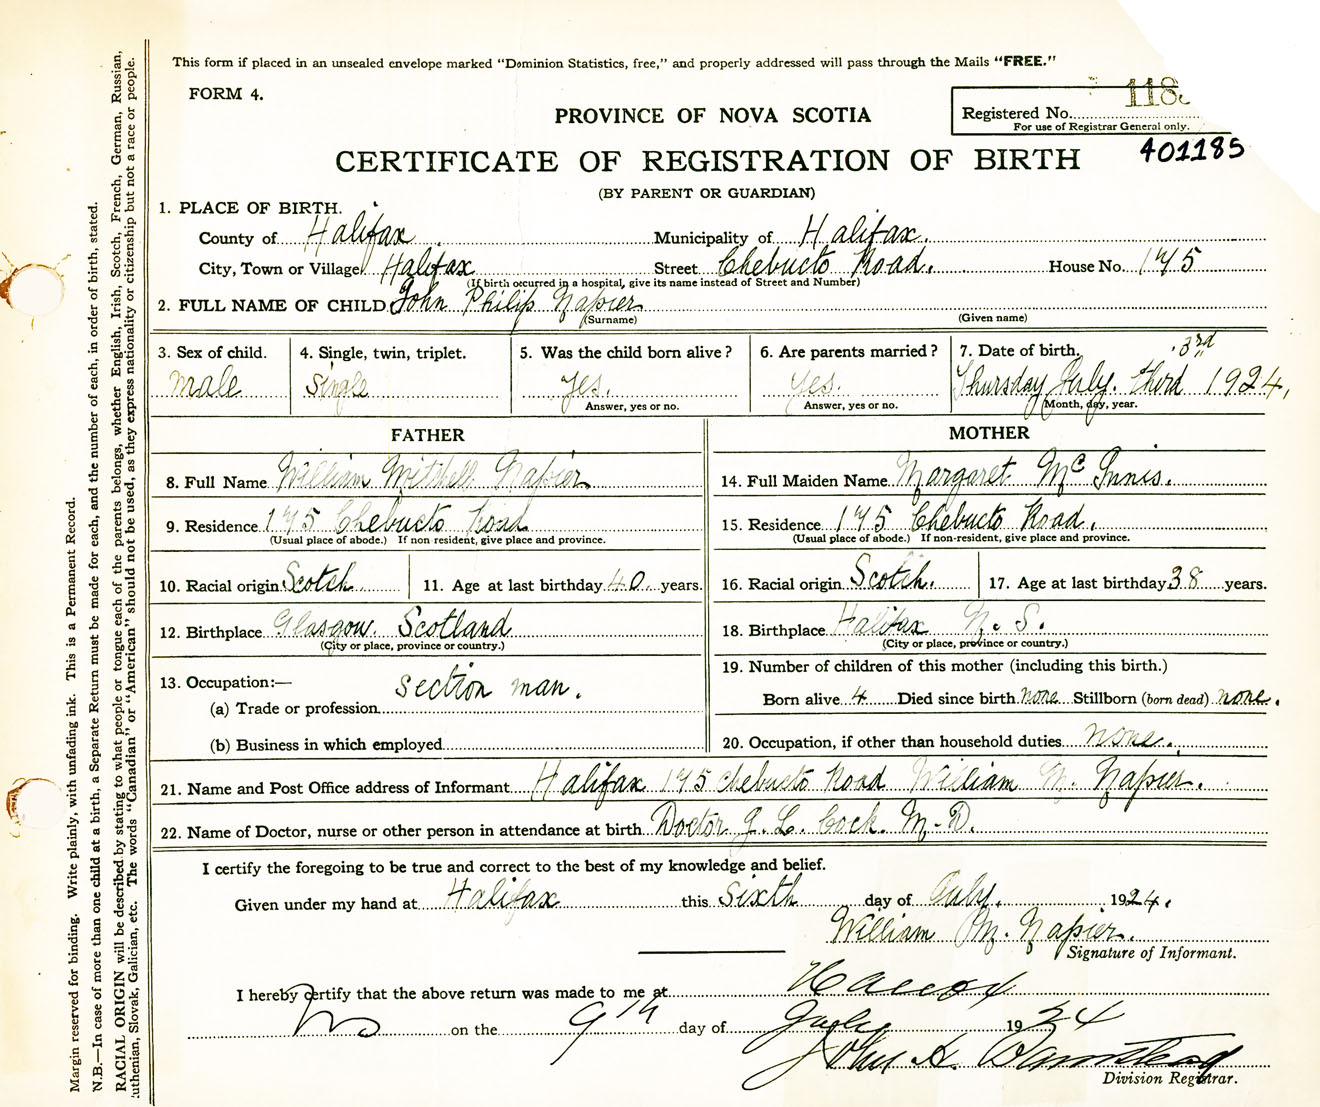 This form if placed in an unsealed envelope marked "Dominion Statistics, free," and properly addressed will pass through the Mails "FREE."
FORM 4.
PROVINCE OF NOVA SCOTIA
Registered No. 1185
For use of Registrar General only.
401185
CERTIFICATE OF REGISTRATION OF BIRTH
(BY PARENT OR GUARDIAN)
1. PLACE OF BIRTH.
County of Halifax. Municipality of Halifax.
City, Town or Village Halifax Street Chebucto Road. House No. 175
(If birth occurred in a hospital, give its name instead of Street and Number)
2. FULL NAME OF CHILD John Philip Napier
(Surname) (Given name)
3. Sex of child. 4. Single, twin, triplet. 5. Was the child born alive? 6. Are parents married? 7. Date of birth. 3rd
male single yes. yes. Thursday July. third 1924,
Answer, yes or no. Answer, yes or no. Month, day, year.
FATHER MOTHER
8. Full Name William Mitchell Napier 14. Full Maiden Name Margaret Mc Innis.
9. Residence 175 Chebucto Road 15. Residence 175 Chebucto Road.
(Usual place of abode.) If non-resident, give place and province. (Usual place of abode.) If non-resident, give place and province.
10. Racial origin Scotch. 11. Age at last birthday 40 years. 16. Racial origin Scotch. 17. Age at last birthday 38 years.
12. Birthplace Glasgow. Scotland 18. Birthplace Halifax N. S.
(City or place, province or country.) (City or place, province or country.)
13. Occupation:— section man. 19. Number of children of this mother (including this birth.)
(a) Trade or profession Born alive 4 Died since birth none Stillborn (born dead) none.
(b) Business in which employed 20. Occupation, if other than household duties none.
21. Name and Post Office address of Informant Halifax 175 Chebucto Road William M. Napier.
22. Name of Doctor, nurse or other person in attendance at birth Doctor J. L. Cock. M.D.
I certify the foregoing to be true and correct to the best of my knowledge and belief.
Given under my hand at Halifax this sixth day of July. 1924.
William M. Napier.
Signature of Informant.
I hereby certify that the above return was made to me at Halifax
NS on the 9th day of July 1924
John A. Barnstead
Division Registrar.
Margin reserved for binding. Write plainly, with unfading ink. This is a Permanent Record.
N.B.—In case of more than one child at a birth, a Separate Return must be made for each, and the number of each, in order of birth, stated.
RACIAL ORIGIN will be described by stating to what people or tongue each of the parents belongs, whether English, Irish, Scotch, French, German, Russian,
uthenian, Slovak, Galician, etc. The words "Canadian" or "American" should not be used, as they express nationality or citizenship but not a race or people.